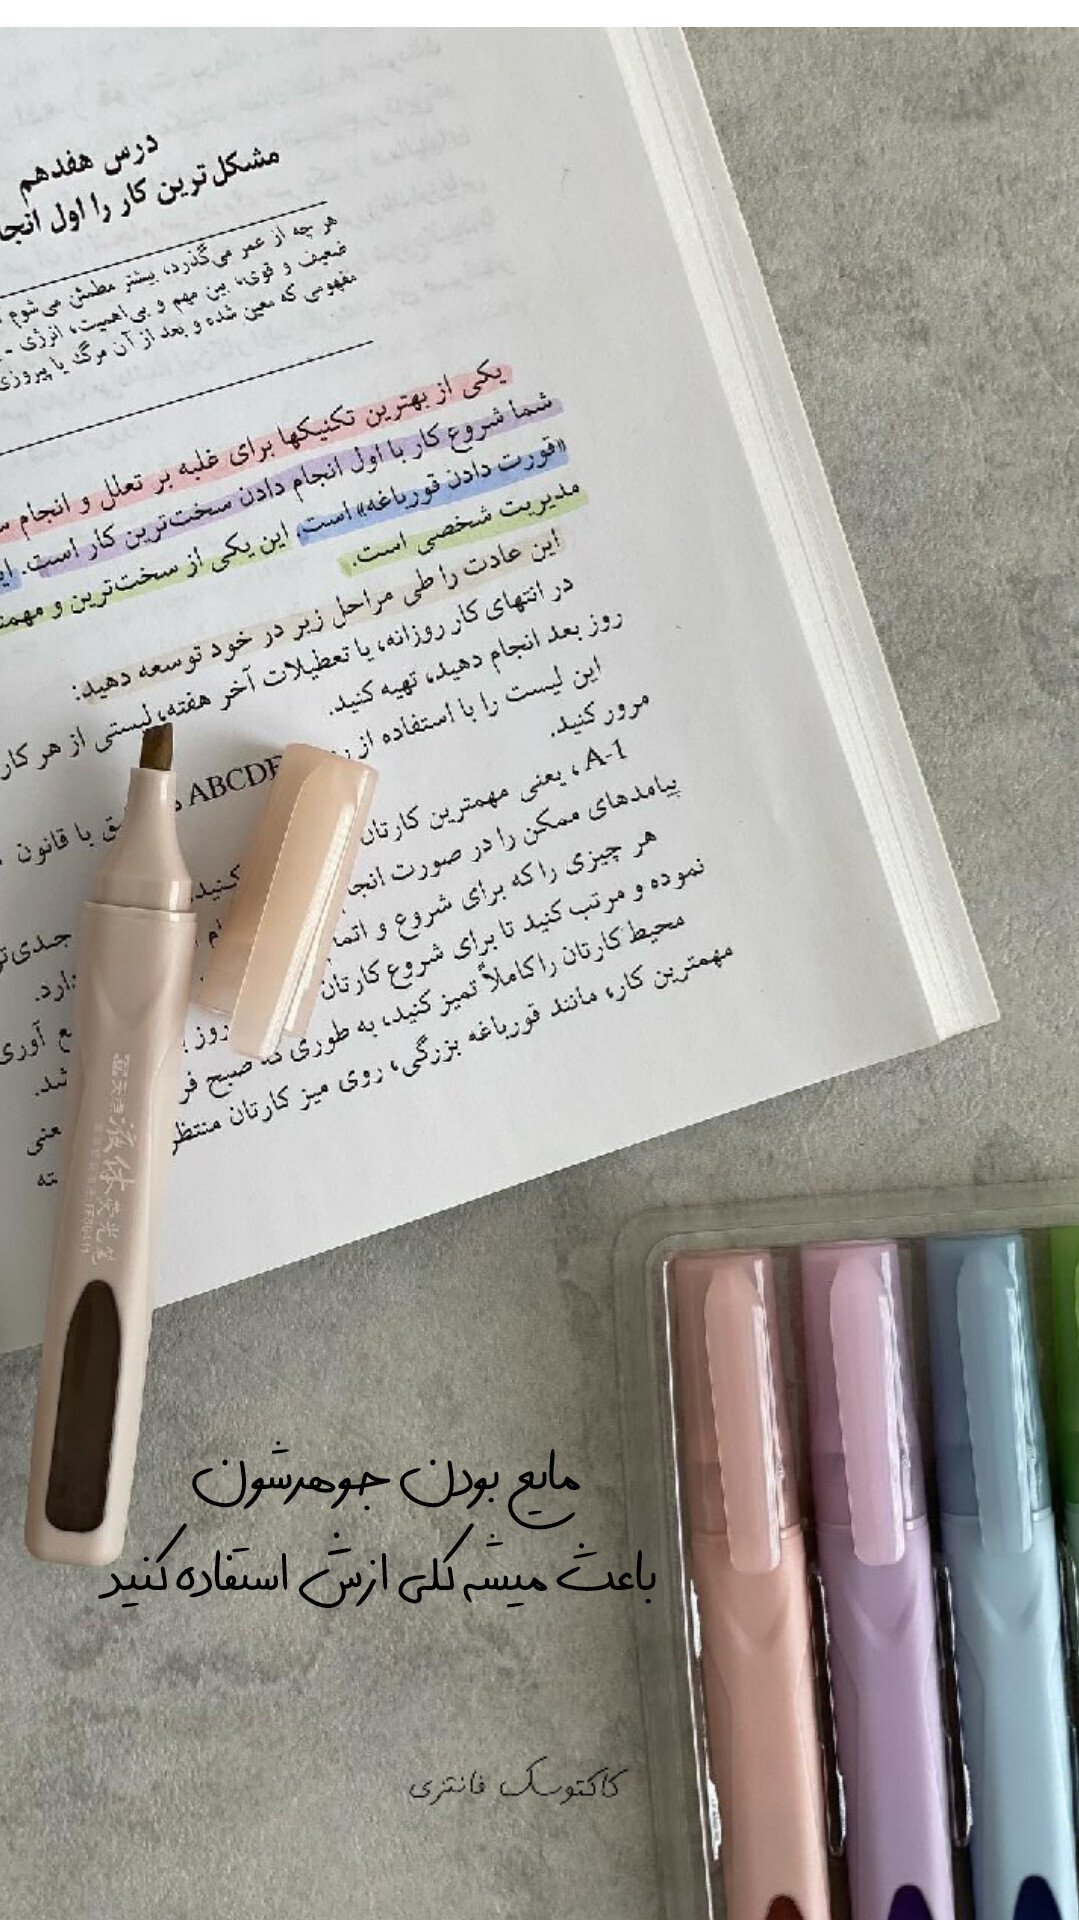 درس هفدهم
مشکل‌ترین کار را اول
هر چه از عمر می‌گذرد، بیشتر مطمئن می‌شوم
ضعیف و قوی، بین مهم و بی‌اهمیت، انرژی -
مفهومی که معین شده و بعد از آن مرگ یا پیروزی
یکی از بهترین تکنیکها برای غلبه بر تعلل و انجام
شما شروع کار با اول انجام دادن سخت‌ترین کار است.
«قورت دادن قورباغه» است. این یکی از سخت‌ترین و
مدیریت شخصی است.
این عادت را طی مراحل زیر در خود توسعه دهید:
در انتهای کار روزانه، یا تعطیلات آخر هفته، لیستی از هر کار
روز بعد انجام دهید، تهیه کنید.
این لیست را با استفاده از ABCDE با قانون
مرور کنید.
A-1، یعنی مهمترین کارتان کنید.
پیامدهای ممکن را در صورت
هر چیزی را که برای شروع و
نموده و مرتب کنید تا برای شروع کارتان
محیط کارتان را کاملاً تمیز کنید، به طوری که صبح
مهمترین کار، مانند قورباغه بزرگی، روی میز کارتان
液体荧光笔
مایع بودن جوهرشون
باعث میشه کلی ازش استفاده کنید
کاکتوسک فانتزی